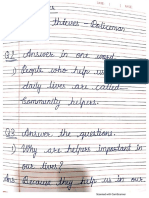 thieves - Policeman
Q2 Answer in one word.
1) People who help us in our
daily lives are called-
Community helpers.
Q3 Answer the questions.
1) Why are helpers important in
our lives?
Ans Because they help us in our